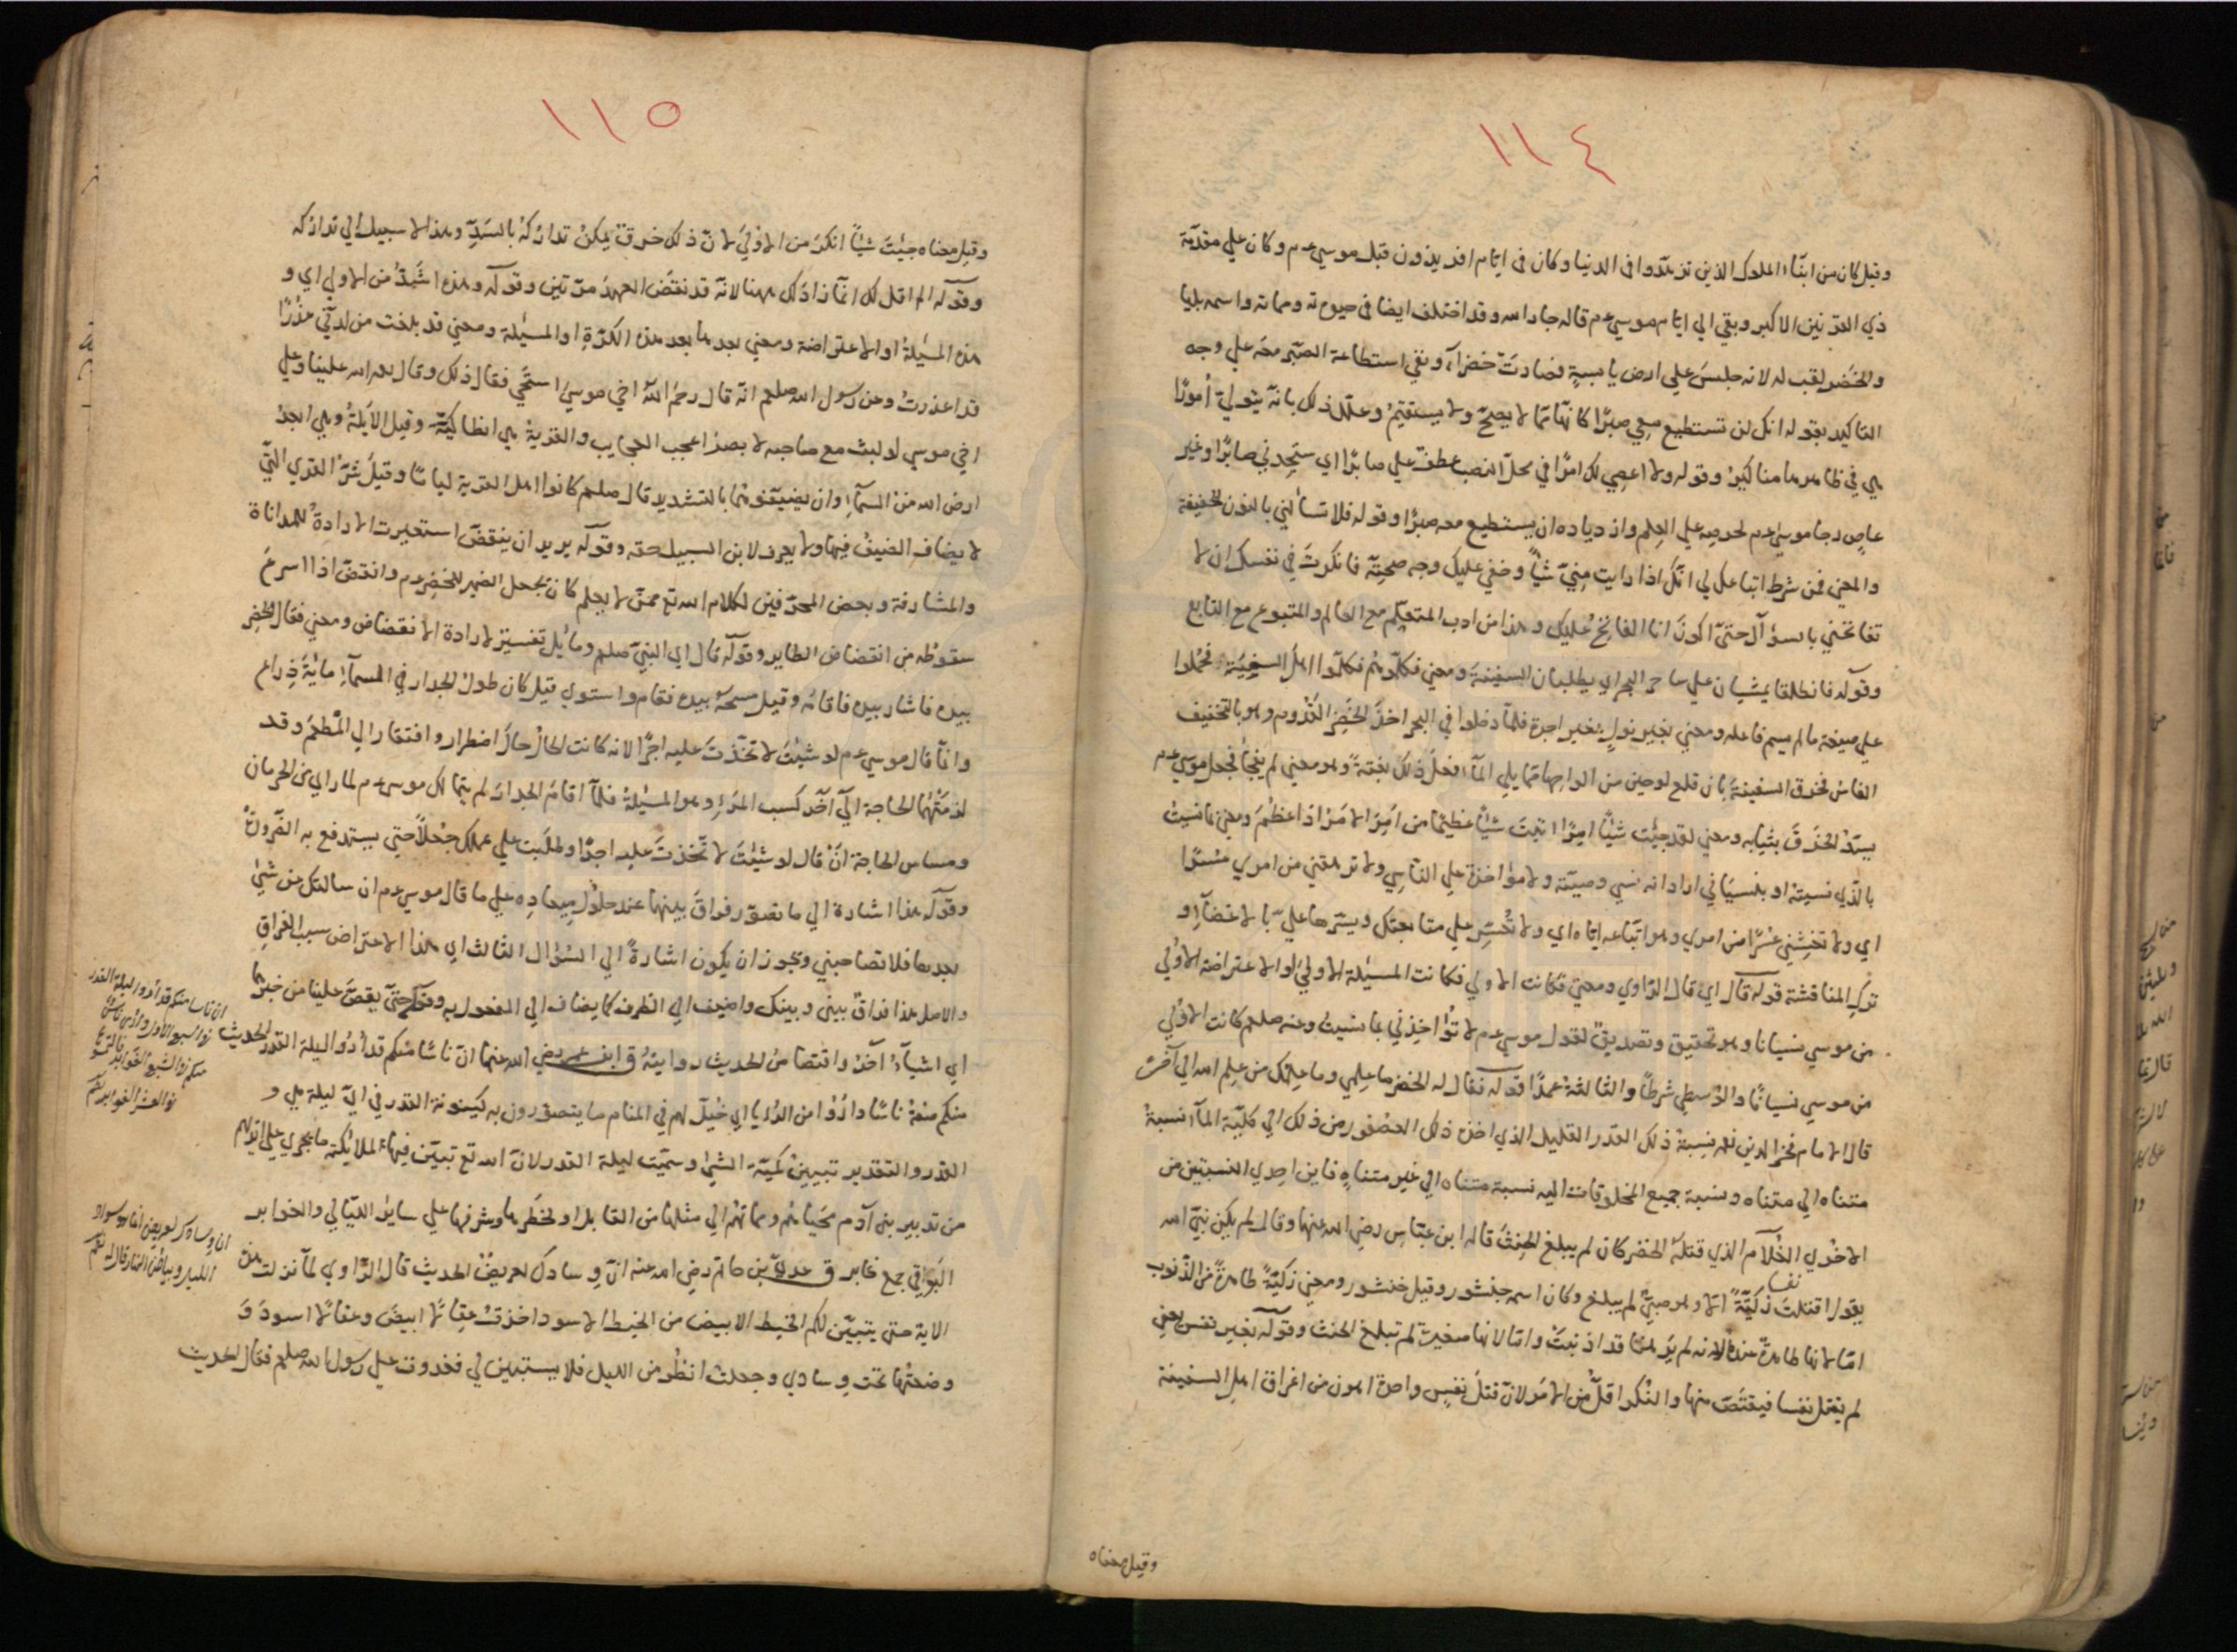 ١١٤
وقيل كان من ابناء الملوك الذين تزهدوا فى الدنيا وكان فى ايام افريذون قبل موسي عم وكان علي مقدمة
ذي القرنين الاكبر وبقي الي ايام موسي عم قاله جار الله وقد اختلف ايضا فى حيوته ومماته واسمه بليا
والخضر لقب له لانه جلس علي ارض يابسة فصارت خضرآء ونفي استطاعة الصبر معه علي وجه
التاكيد بقوله انك لن تستطيع معي صبرًا كانها مما لا يصح ولا يستقيم وعلل ذلك بانه يتولي أمورًا
هي في ظاهرها مناكير وقوله ولا اعصي لك امرًا في محل النصب عطف علي صابرًا اي ستجدني صابرًا وغير
عاصٍ رجا موسي عم لحرصه علي العلم وازدياده ان يستطيع معه صبرًا وقوله فلا تسألني بالنون الخفيفة
والمعني فمن شرط اتباعك لي انك اذا رايت مني شيأ وخفي عليك وجه صحته فانكرت في نفسك ان لا
تفاتحني بالسؤال حتي اكون انا الفاتح عليك وهذا من ادب المتعلم مع العالم والمتبوع مع التابع
وقوله فانطلقا يمشيان علي ساحل البحر اي يطلبان السفينة ومعني فكلموهم فكلموا اهل السفينة فحملوا
علي صيغة ما لم يسم فاعله ومعني بغير نول بغير اجرة فلما دخلوا في البحر اخذ الخضر القدوم وهو بالتخفيف
الفاس فخرق السفينة بان قلع لوحين من الواحها مما يلي المآء فعل ذلك بغتة وهو معني لم يفجأ فجعل موسي عم
يسد الخرق بثيابه ومعني لقد جئت شيأ امرًا اتيت شيأ عظيمًا من امر الامر اذا عظم ومعني بما نسيت
بالذي نسيته او بنسياني اراد انه نسي وصيته ولا مؤاخذة علي الناسي ولا ترهقني من امري عسرًا
اي ولا تغشني عسرًا من امري وهو اتباعه اياه اي ولا تعسر علي متابعتك ويسرها علي بالاغضآء و
ترك المناقشة قوله قال اي قال الراوي ومعني فكانت الاولي فكانت المسئلة الاولي او الاعتراضة الاولي
من موسي نسيانا وهو تحقيق وتصديق لقول موسي عم لا تؤاخذني بما نسيت وعنه صلعم كانت الاولي
من موسي نسيانًا والوسطي شرطًا والثالثة عمدًا قوله فقال له الخضر ما علمي وما علمك من علم الله الي آخره
قال الامام فخر الدين نعم نسبة ذلك القدر القليل الذي اخذه ذلك العصفور من ذلك الي كلية المآء نسبة
متناه الي متناه ونسبة جميع المخلوقات اليه نسبة متناه الي غير متناهٍ فاين احدي النسبتين من
الاخري الغلام الذي قتله الخضر كان لم يبلغ الحنث قاله ابن عباس رضي الله عنهما وقال لم يكن نبي الله
يقول اقتلت نفسا زكيةً الا وهو صبي لم يبلغ وكان اسمه جنشور وقيل خنشور ومعني زكية طاهرة من الذنوب
اما لانها طاهرة عنده لانه لم يرها قد اذنبت واما لانها صغيرة لم تبلغ الحنث وقوله بغير نفس يعني
لم يقتل نفسا فيقتص منها والنكر اقل من الامر لان قتل نفس واحدة اهون من اغراق اهل السفينة
وقيل معناه
١١٥
وقيل معناه جئت شيأ انكر من الاولي لان ذلك خرق يمكن تداركه بالسد وهذا لا سبيل الي تداركه
وقوله الم اقل لك انما زاد لك ههنا لانه قد نقض العهد مرتين وقوله وهذه اشد من الاولي اي و
هذه المسئلة او الاعتراضة ومعني بعدها بعد هذه الكرة او المسئلة ومعني قد بلغت من لدني عذرًا
قد اعذرت وعن رسول الله صلعم انه قال رحم الله اخي موسي استحيي فقال ذلك وقال رحمة الله علينا وعلي
اخي موسي لو لبث مع صاحبه لابصر اعجب العجايب والقرية هي انطاكية وقيل الابلة وهي ابعد
ارض الله من السمآء وان يضيفوهما بالتشديد قال صلعم كانوا اهل القرية ليامًا وقيل شر القري التي
لا يضاف الضيف فيها ولا يعرف لابن السبيل حقه وقوله يريد ان ينقض استعيرت الارادة للمداناة
والمشارفة وبعض المحرفين لكلام الله تع ممن لا يعلم كان يجعل الضمير للخضر عم وانقض اذا اسرع
سقوطه من انقضاض الطاير وقوله قال اي النبي صلعم ومائل تفسير لارادة الانقضاض ومعني فقال الخضر
بيده فاشار بيده فاقامه وقيل مسحه بيده فقام واستوي قيل كان طول الجدار في السمآء ماية ذراع
وانما قال موسي عم لو شئت لاتخذت عليه اجرًا لانه كانت الحال حال اضطرار وافتقار الي المطعم وقد
لزمتهما الحاجة الي آخر كسب المرء وهو المسئلة فلما اقام الجدار لم يتمالك موسي عم لما راي من الحرمان
ومساس الحاجة ان قال لو شئت لاتخذت عليه اجرًا وطلبت علي عملك جعلًا حتي يستدفع به الضرورة
وقوله هذا اشارة الي ما تصور فراق بينهما عند حلول ميعاده علي ما قال موسي عم ان سالتك عن شئ
بعدها فلا تصاحبني ويجوز ان يكون اشارة الي السؤال الثالث اي هذا الاعتراض سبب الفراق
والاصل هذا فراق بيني وبينك واضيف الي الظرف كما يضاف الي المفعول به وقوله حتي يقص علينا من خبرهما
اي اشيآء آخر واقتصاص الحديث روايته ق ابن عمر رضي الله عنهما ان ناسًا منكم قد أروا ليلة القدر الحديث
منكم صفة ناسًا وأروا من الرؤيا اي خيل لهم في المنام ما يتصورون به كينونة القدر في اي ليلة هي و
القدر والتقدير تبيين كمية الشئ وسميت ليلة القدر لان الله تع تبين فيها لملائكته ما يجري علي ايديهم
من تدبير بني آدم محياهم ومماتهم الي مثلها من القابل او لخطرها وشرفها علي ساير الليالي والغوابر
البواقي جمع غابر ق عدي بن حاتم رضي الله عنه ان وسادك لعريض الحديث قال الراوي لما نزلت هذه
الاية حتي يتبين لكم الخيط الابيض من الخيط الاسود اخذت عقالًا ابيض وعقالًا اسود و
وضعتهما تحت وسادي وجعلت انظر من الليل فلا يستبين لي فغدوت علي رسول الله صلعم فقال الحديث
ان ناسا منكم قد أروا ليلة القدر
في السبع الاول وأري ناس
منكم في السبع الغوابر
في العشر الغوابر
ان وسادك لعريض انما هو سواد
الليل وبياض النهار قاله